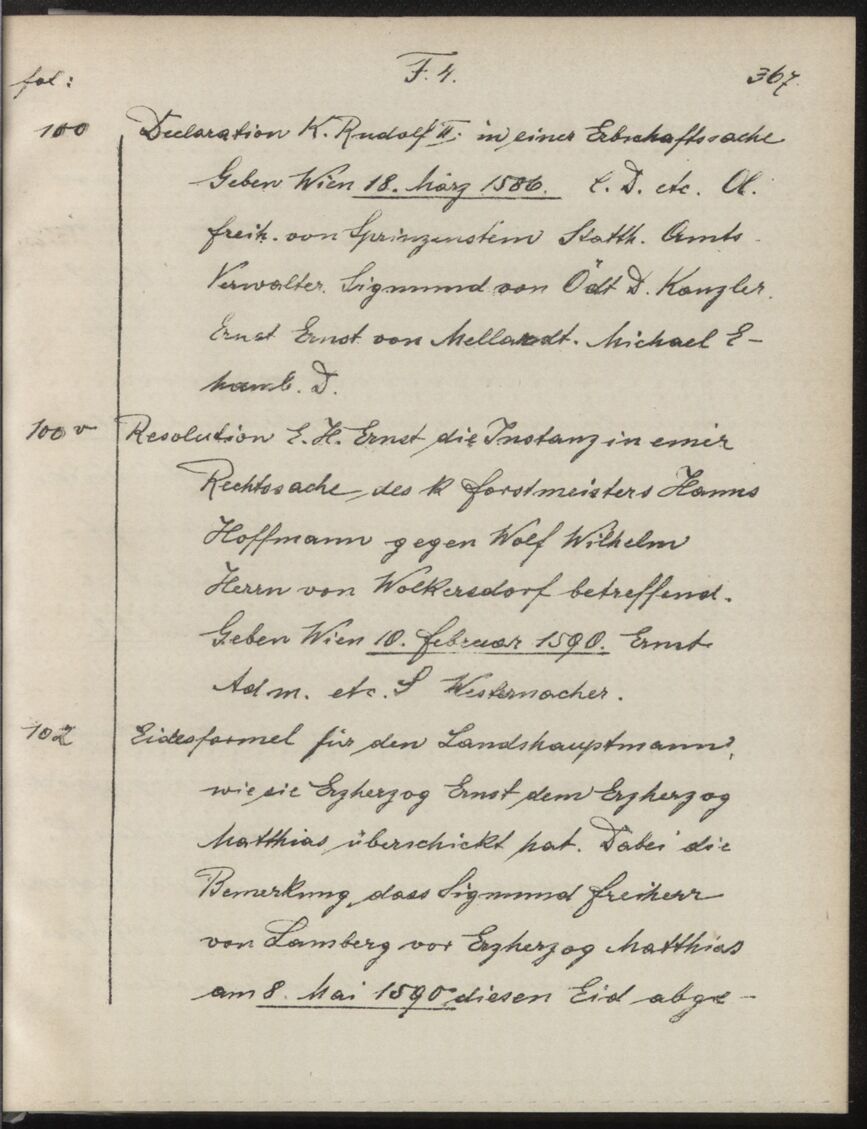 fol: F. 4. 367.
100 Declaration K. Rudolf II. in einer Erbschaftssache
Geben Wien 18. März 1586. C. D. etc. Ol.
Freih. von Sprinzenstein Statth. Amts
Verwalter. Sigmund von Ödt D. Kanzler.
Ernst Ernst von Mellardt. Michael E-
hamb. D.
100 v Resolution E. H. Ernst die Instanz in einer
Rechtssache des k Forstmeisters Hanns
Hoffmann gegen Wolf Wilhelm
Herrn von Wolkersdorf betreffend.
Geben Wien 10. Februar 1590. Ernst
Adm. etc. S Westernacher.
102 Eidesformel für den Landshauptmann,
wie sie Erzherzog Ernst dem Erzherzog
Matthias überschickt hat. Dabei die
Bemerkung, dass Sigmund Freiherr
von Lamberg vor Erzherzog Matthias
am 8. Mai 1590 diesen Eid abge-